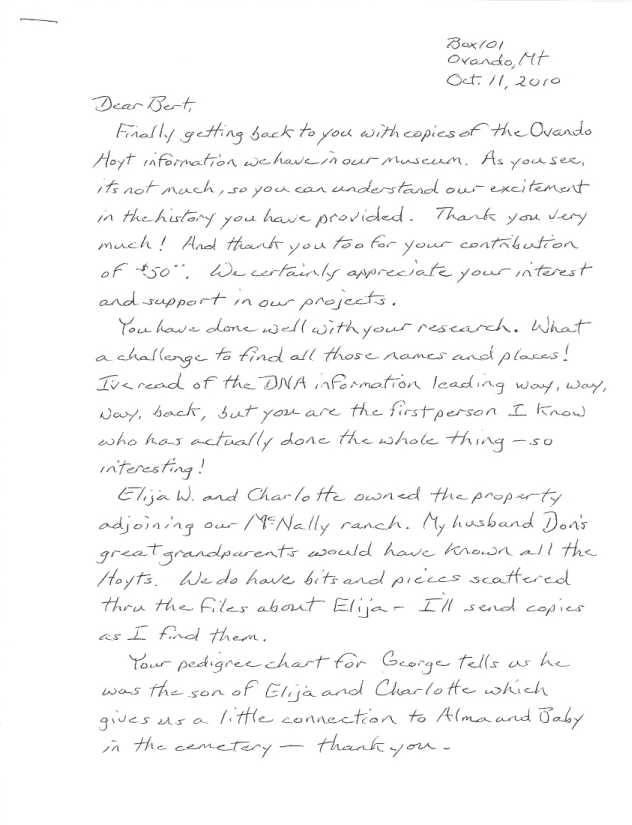 Box 101
Ovando, Mt
Oct. 11, 2010
Dear Bert,
Finally getting back to you with copies of the Ovando
Hoyt information we have in our museum. As you see,
its not much, so you can understand our excitement
in the history you have provided. Thank you very
much! And thank you too for your contribution
of $50°°. We certainly appreciate your interest
and support in our projects.
You have done well with your research. What
a challenge to find all those names and places!
I've read of the DNA information leading way, way,
way, back, but you are the first person I know
who has actually done the whole thing - so
interesting!
Elija W. and Charlotte owned the property
adjoining our McNally ranch. My husband Don's
great grandparents would have known all the
Hoyts. We do have bits and pieces scattered
thru the files about Elija - I'll send copies
as I find them.
Your pedigree chart for George tells us he
was the son of Elija and Charlotte which
gives us a little connection to Alma and Baby
in the cemetery - thank you -